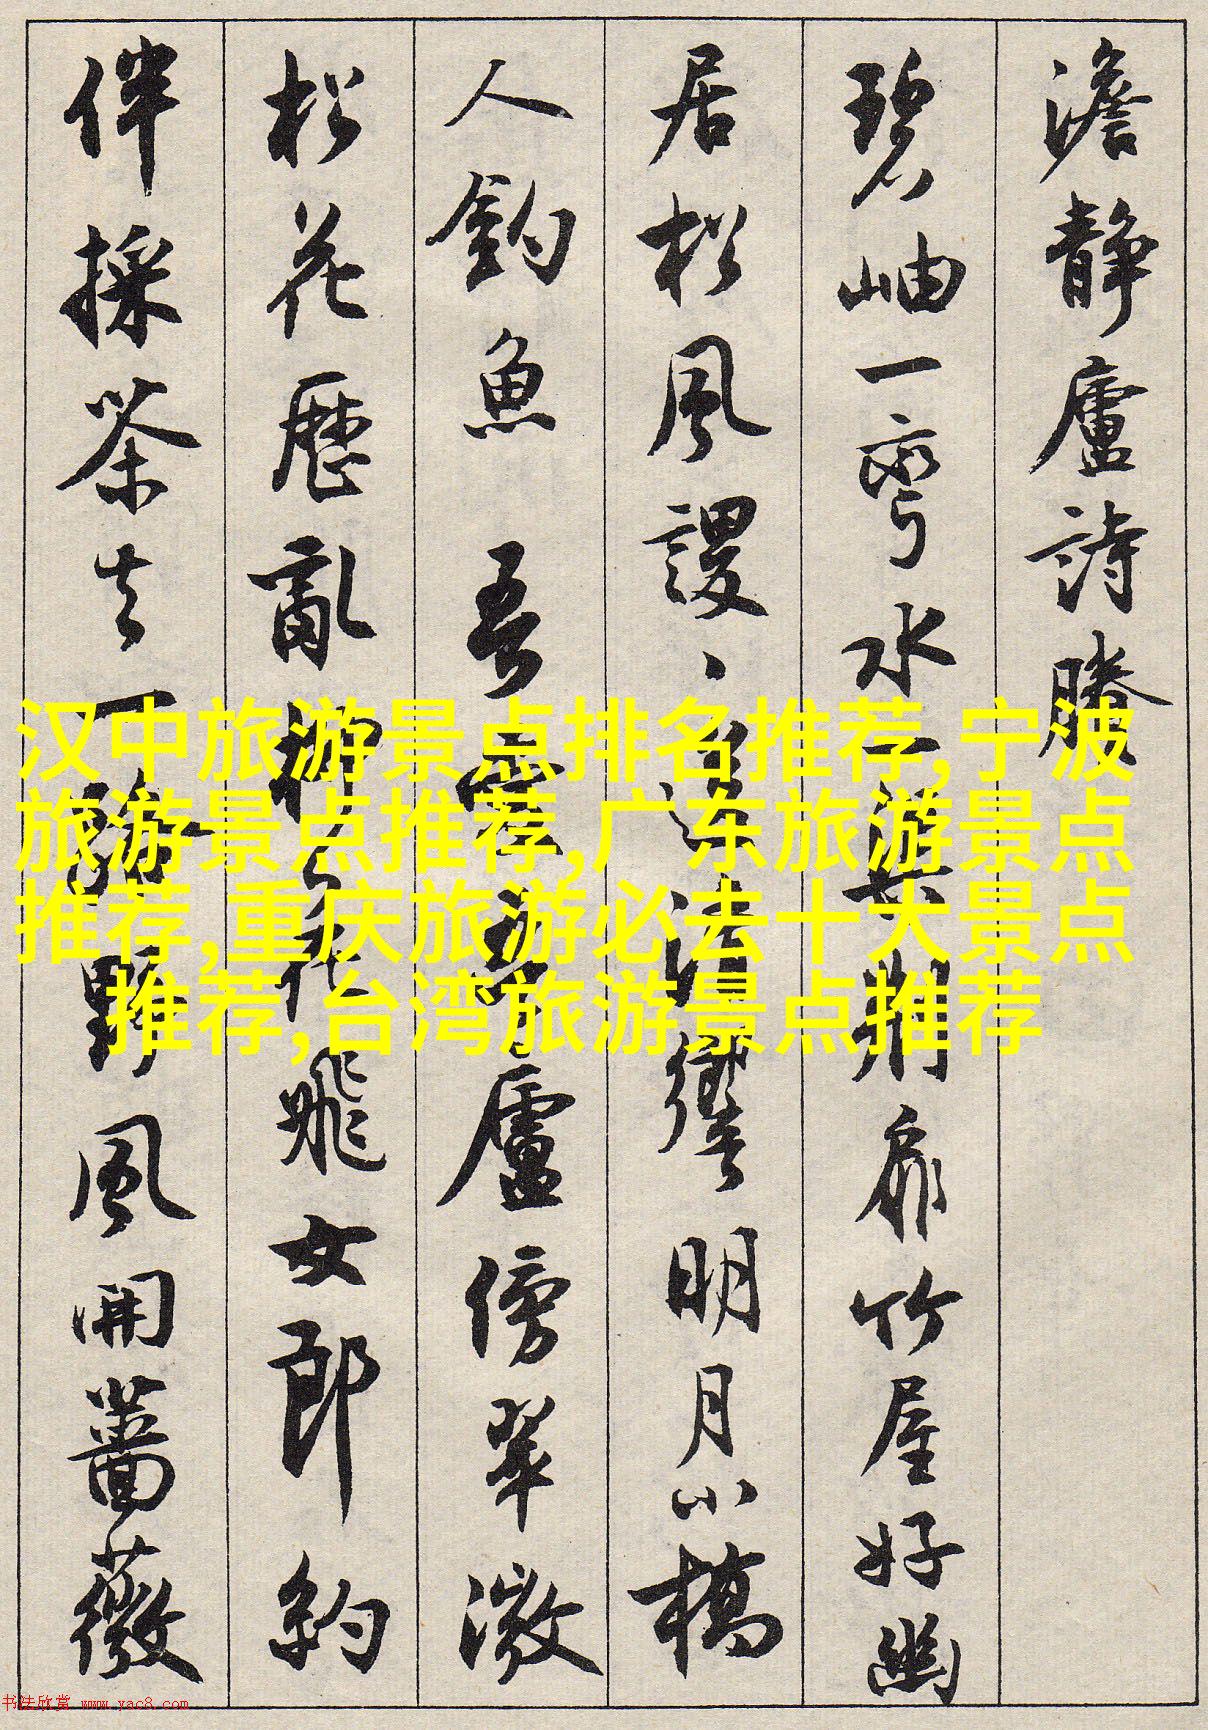 澹静廬詩賸
碧岫一彎水
扉竹屋好幽
居松風謖、
明月小橋
人釣魚 吾愛吾廬傍翠微
松花歷亂柳花飛女郎約
伴採茶去一路野風開薔薇
汉中旅游景点排名推荐,宁波
旅游景点推荐,广东旅游景点
推荐,重庆旅游必去十大景点
推荐,台湾旅游景点推荐
书法欣赏 www.yac8.com